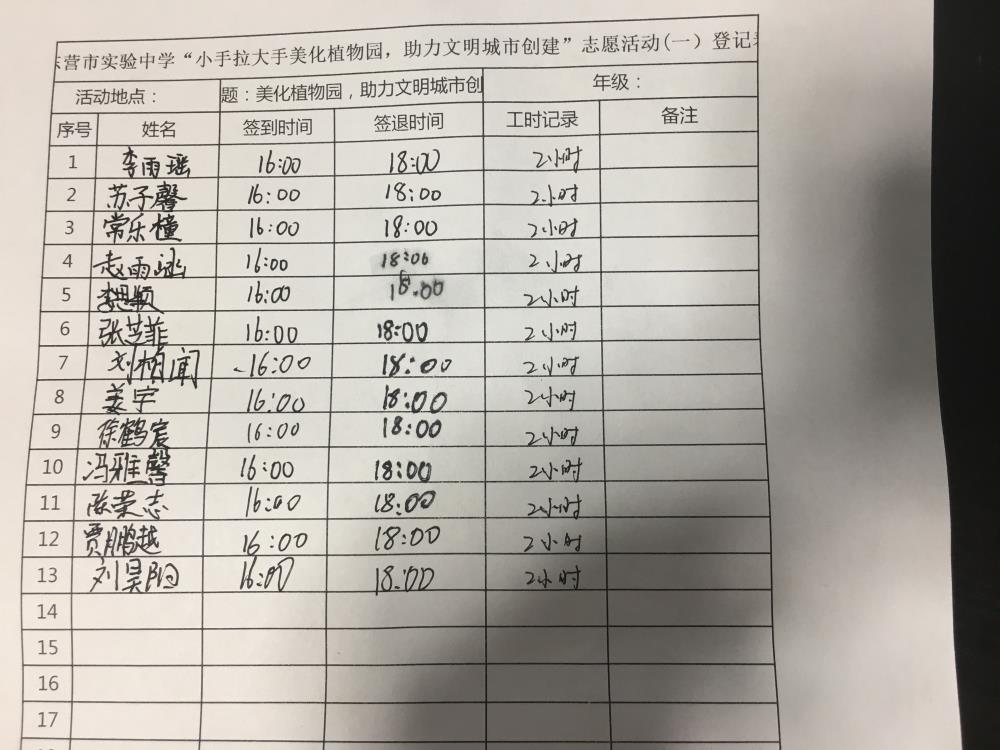 东营市实验中学“小手拉大手美化植物园，助力文明城市创建”志愿活动(一）登记表
活动地点： 题：美化植物园，助力文明城市创 年级：
序号 姓名 签到时间 签退时间 工时记录 备注
1 李雨瑶 16:00 18:00 2小时
2 苏子馨 16:00 18:00 2小时
3 常乐橦 16:00 18:00 2小时
4 赵雨涵 16:00 18:00 2小时
5 李思颖 16:00 18:00 2小时
6 张芝菲 16:00 18:00 2小时
7 刘柏闻 16:00 18:00 2小时
8 姜宇 16:00 18:00 2小时
9 徐鹤宸 16:00 18:00 2小时
10 冯雅馨 16:00 18:00 2小时
11 陈荣志 16:00 18:00 2小时
12 贾鹏越 16:00 18:00 2小时
13 刘昊阳 16:00 18:00 2小时
14
15
16
17